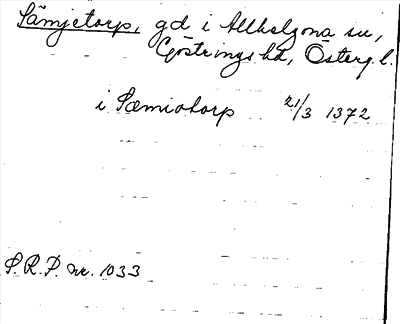 Sämjetorp, gd i Allhelgona sn,
Göstrings hd, Österg. l.
i Sæmiotorp 21/3 1372
S.R.P. nr. 1033